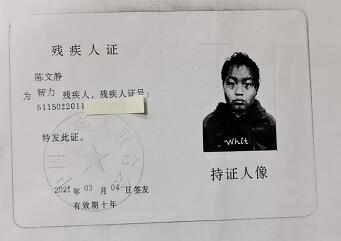 残疾人证
陈文静
为 智力 残疾人，残疾人证号：
5115022011
特发此证。
2021 年 03 月 04 日签发
有效期十年
Whit
持证人像